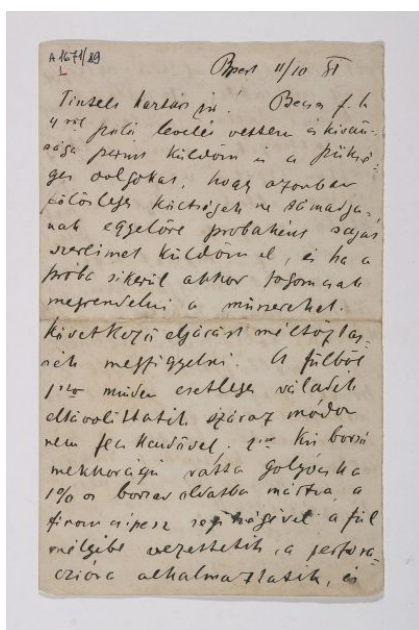 A 1671/89
L
Bpest 11/10 81
Tisztelt kartárs úr! Becses f. h
4 ről levelét vettem és kíván-
sága küldöm is a szüksé-
ges dolgokat, hogy azonban
fölösleges költségek ne támadja-
nak egyelőre probaként saját
szereimet küldöm el, és ha a
próba sikerül akkor fogom csak
megrendelni a műszereket.
Következő eljárást méltóztas-
sék megfigyelni. A fülből
1ször minden esetleges váladék
eltávolíttatik száraz módon
nem fecskendővel. 2szor Kis borsó
mekkoraságú vatta golyócska
1% os borsav oldatba mártva a
finom csipesz segítségével a fül
mélyébe vezettetik, a perfora-
czióra alkalmaztatik, és